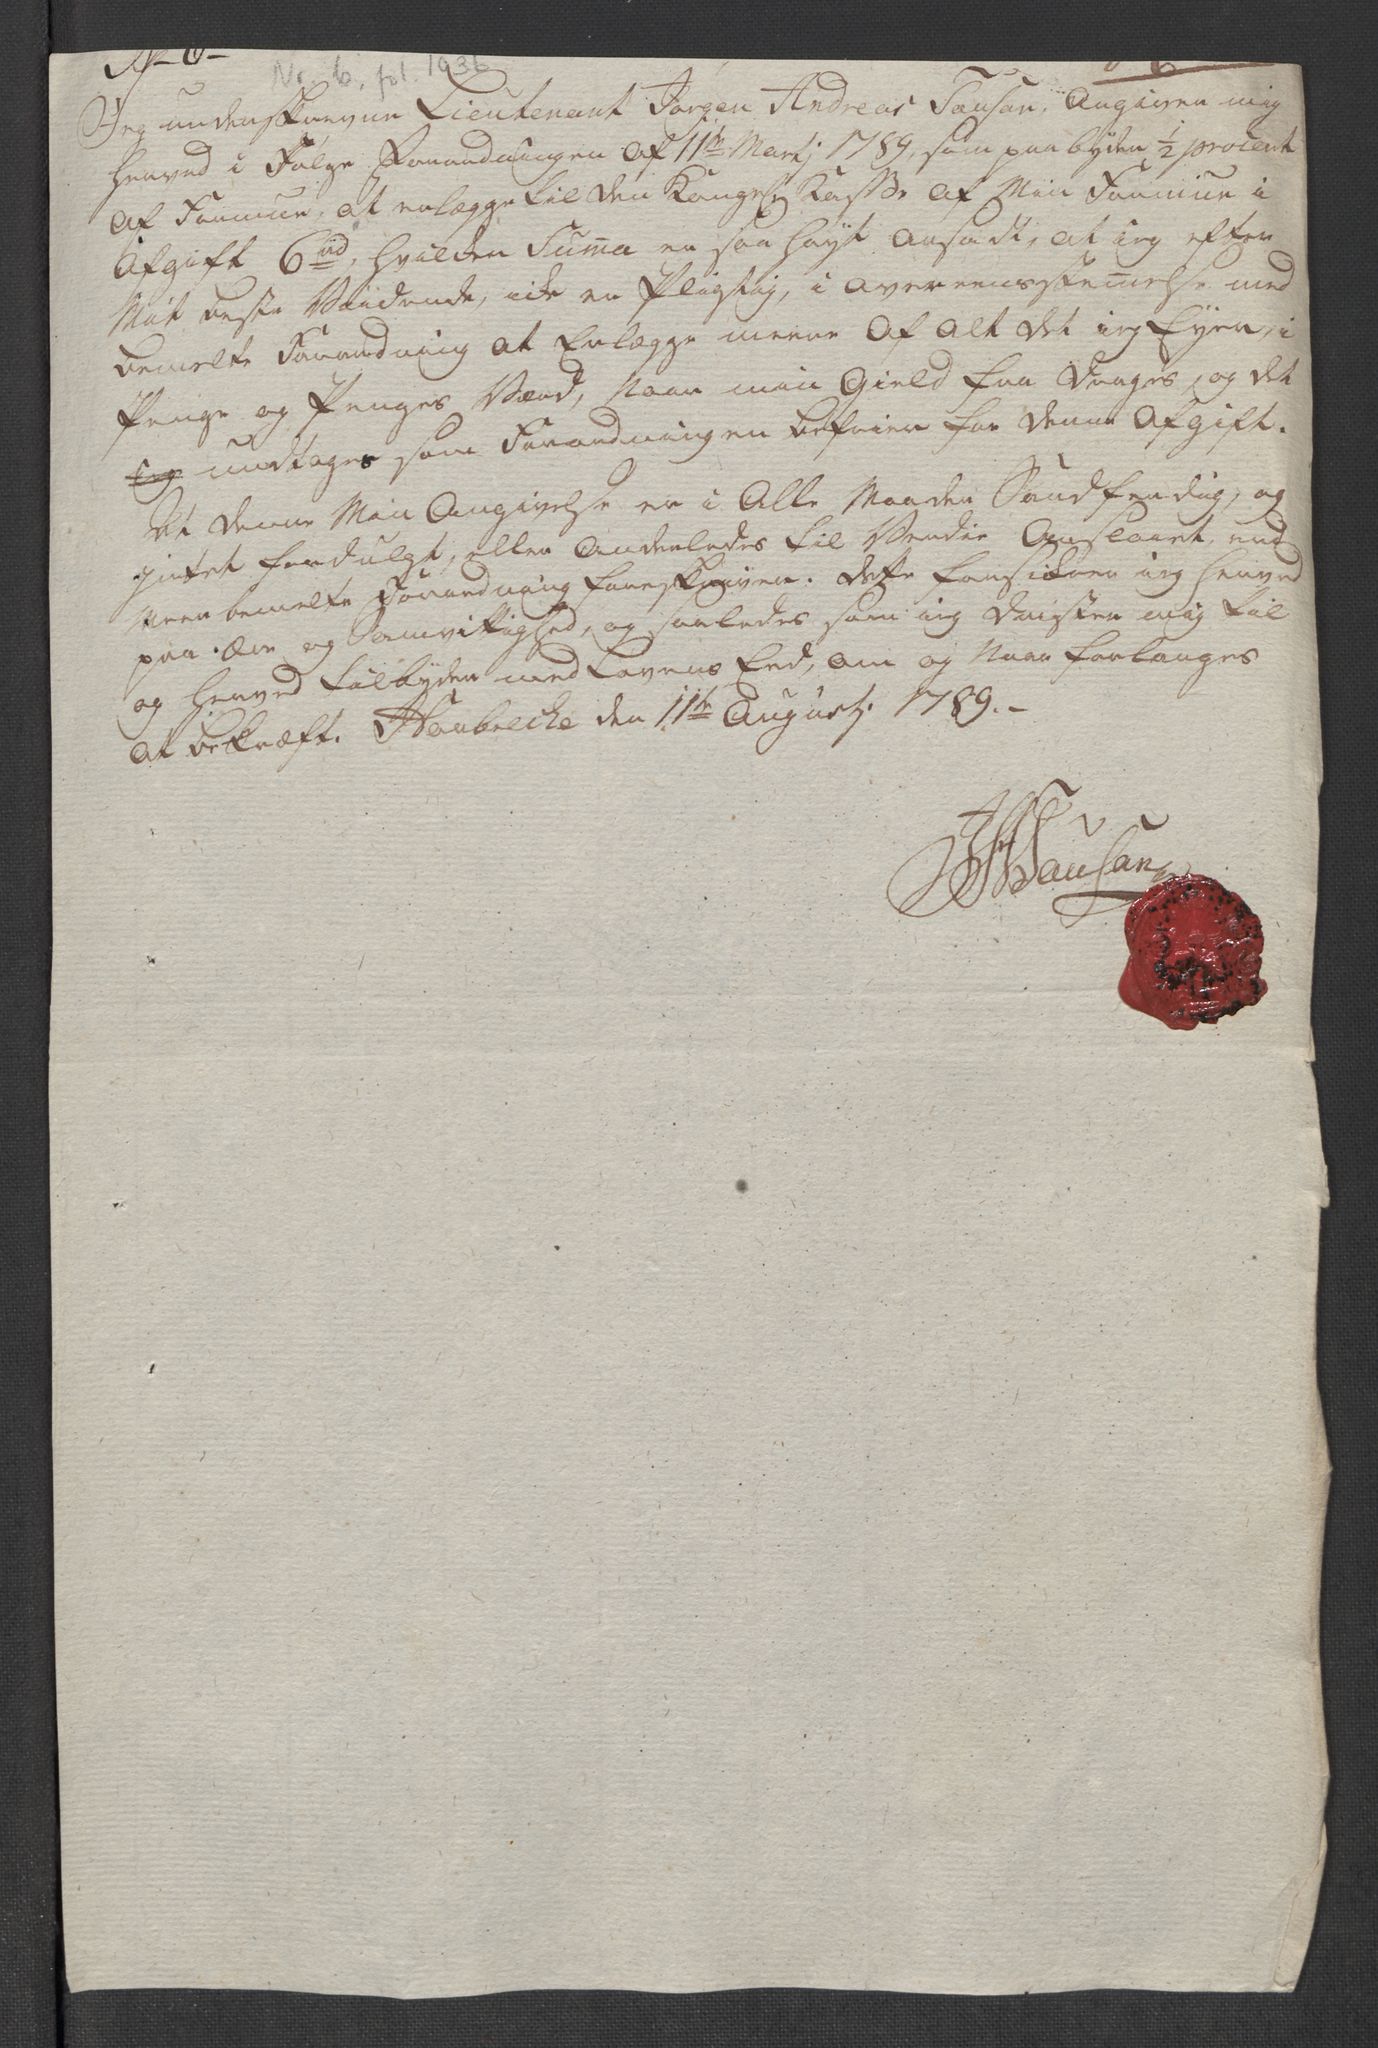 No 6
No. 6, fol. 1936
Jeg underskrevne Lieutenant Jørgen Andreas Tausan, Angiver mig
herved i Følge Forordningen af 11te Martj 1789, som paabyder ½ procent
af Formue, at erlægge til den Kongel: Kasse, af Min Formue i
Afgift 6 rd, hvilken Summa er saa høyt ansadt, at ieg efter
Mit beste Vidende, icke er Pligtig, i Overeensstemelse med
bemelte Forordning at Erlægge meere af alt det ieg Eyer, i
Penge og Penges Værd, Naar min Gield fra drages, og det
ieg undtages som Forordningen befrier for denne Afgift.
At denne Min Angivelse er i Alle Maader Sandfærdig, og
intet fordulgt, eller Anderledes til Verdie Anslaaet, end
Meerbemelte Forordning foreskriver. dette forsikrer ieg herved
paa Ære og Samvittighed, og saaledes som ieg drister mig til
og herved tilbyder med Lovens Eed, om og Naar forlanges
at bekræfte. den 11te Augustj. 1789.-
JATausan